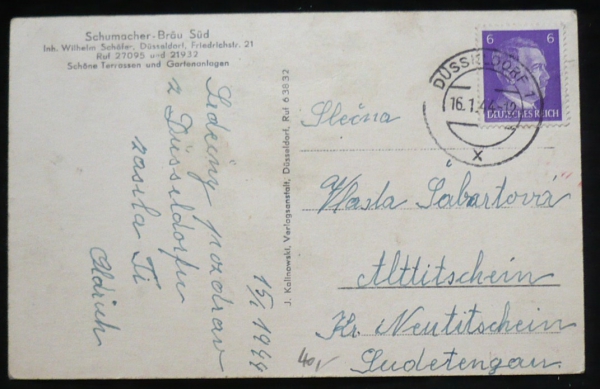 Schumacher-Bräu Süd
Inh. Wilhelm Schäfer, Düsseldorf, Friedrichstr. 21
Ruf 27095 und 21932
Schöne Terrassen und Gartenanlagen
Srdečný pozdrav
z Düsseldorfu
zasílá Ti
Oldřich
15/I 1944
J. Kalinowski, Verlagsanstalt, Düsseldorf, Ruf 63832
6 6
DEUTSCHES REICH
DÜSSELDORF 1
16.1.44-12
x
Slečna
Vlasta Šabartová
Alttitschein
Kr. Neutitschein
Sudetengau.
40,-